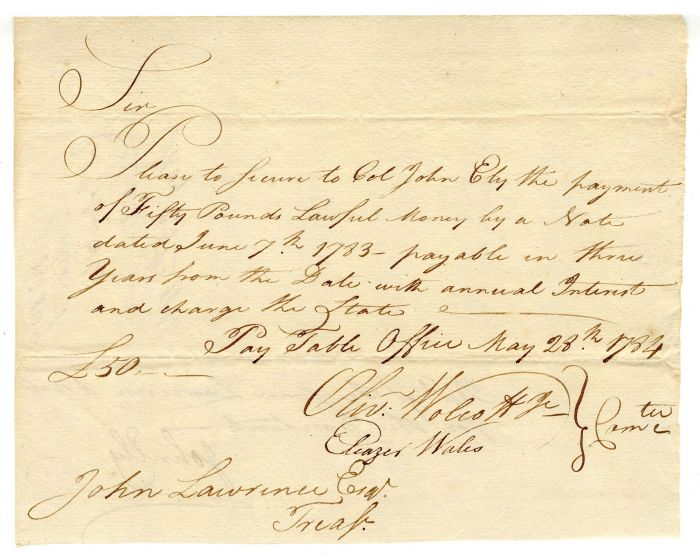 Sir
Please to Secure to Col John Ely the payment
of Fifty Pounds Lawful Money by a Note
dated June 7th 1783 - payable in three
Years from the Date with annual Interest
and charge the State
Pay Table Office May 28th 1784
£50
Olivr. Wolcott Jr
Eleazer Wales
Comtee
John Lawrence Esqr.
Treasr.